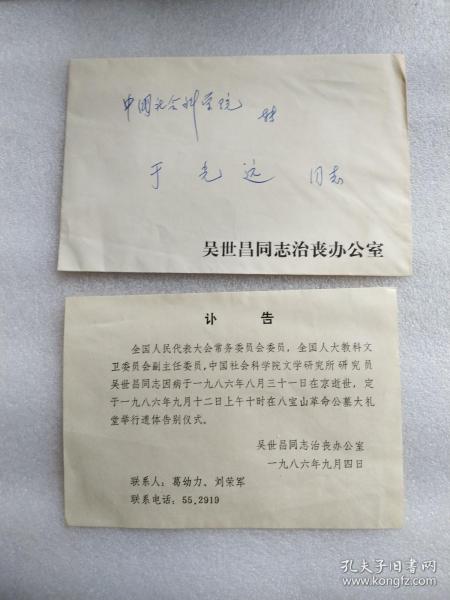 中国社会科学院 转
于光远 同志
吴世昌同志治丧办公室
讣 告
全国人民代表大会常务委员会委员，全国人大教科文
卫委员会副主任委员，中国社会科学院文学研究所研究员
吴世昌同志因病于一九八六年八月三十一日在京逝世，定
于一九八六年九月十二日上午十时在八宝山革命公墓大礼
堂举行遗体告别仪式。
吴世昌同志治丧办公室
一九八六年九月四日
联系人：葛幼力、刘荣军
联系电话：55.2919
孔夫子旧书网
www.kongfz.com